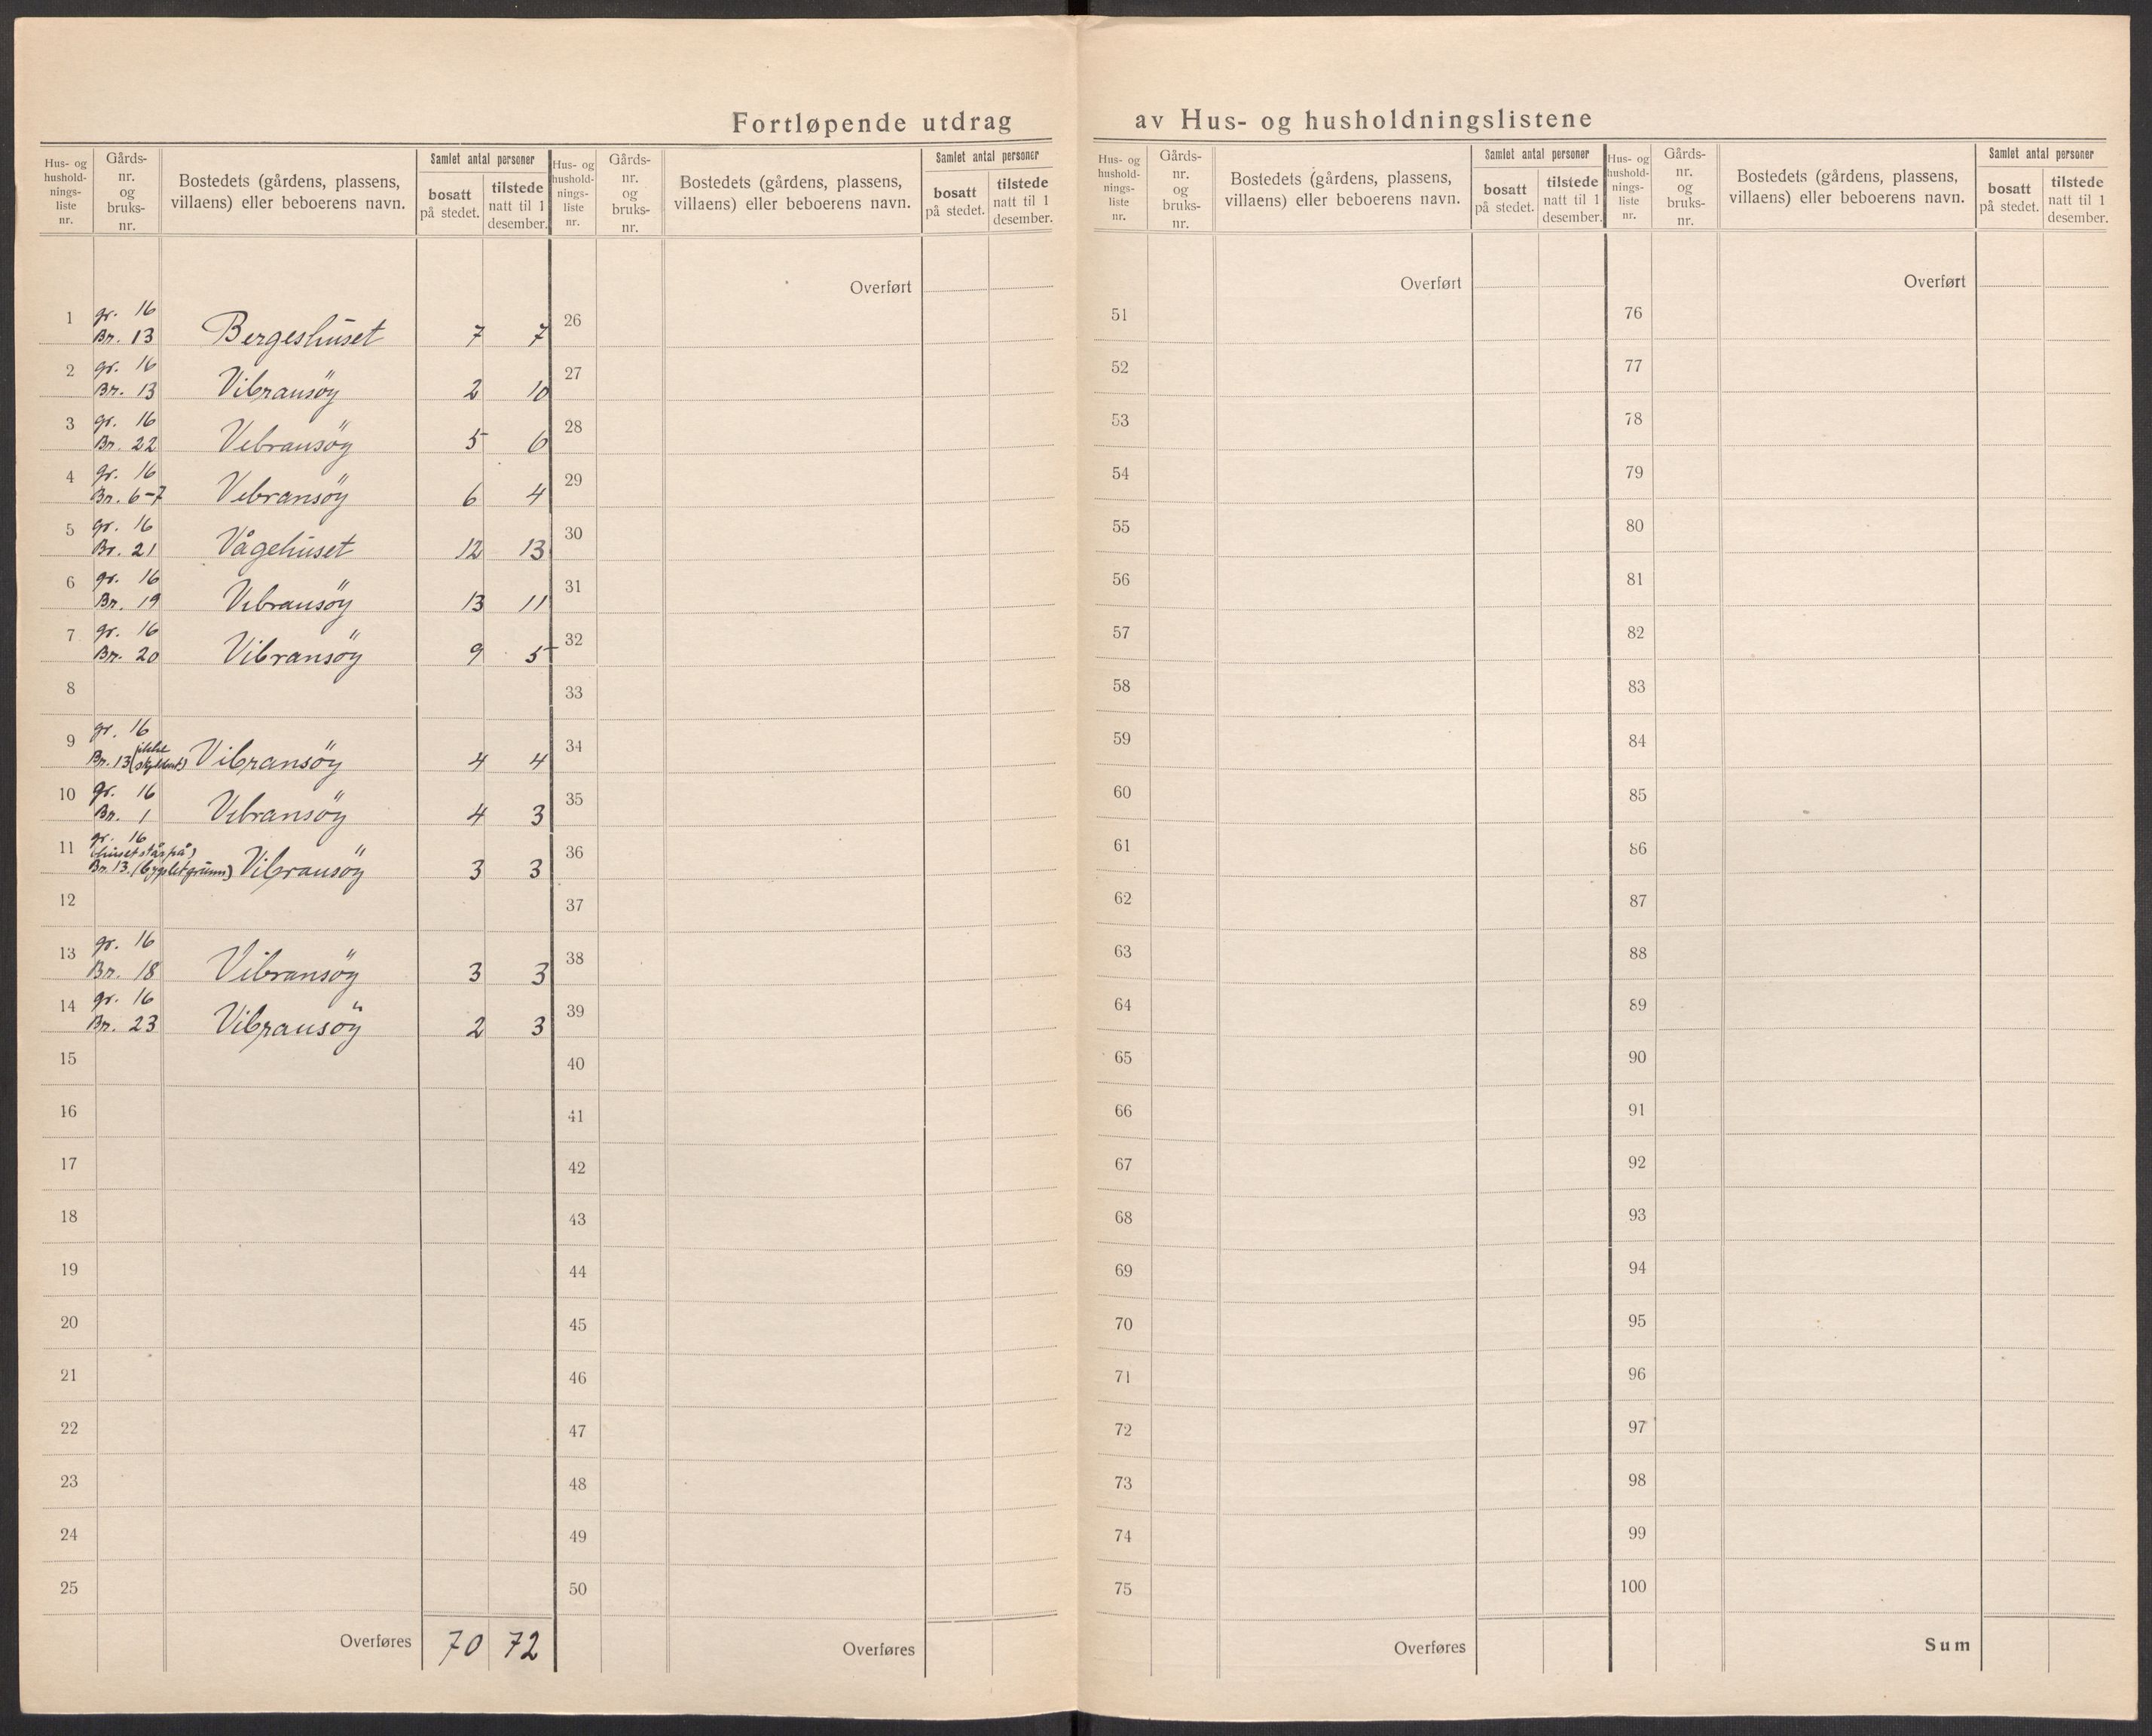 Fortløpende utdrag av Hus- og husholdningslistene
Hus- og hushold- nings- liste nr.
Gårds- nr. og bruks- nr.
Bostedets (gårdens, plassens, villaens) eller beboerens navn.
Samlet antal personer
bosatt på stedet.
tilstede natt til 1 desember.
Hus- og hushold- nings- liste nr.
Gårds- nr. og bruks- nr.
Bostedets (gårdens, plassens, villaens) eller beboerens navn.
Samlet antal personer
bosatt på stedet.
tilstede natt til 1 desember.
Hus- og hushold- nings- liste nr.
Gårds- nr. og bruks- nr.
Bostedets (gårdens, plassens, villaens) eller beboerens navn.
Samlet antal personer
bosatt på stedet.
tilstede natt til 1 desember.
Hus- og hushold- nings- liste nr.
Gårds- nr. og bruks- nr.
Bostedets (gårdens, plassens, villaens) eller beboerens navn.
Samlet antal personer
bosatt på stedet.
tilstede natt til 1 desember.
1 gr. 16
Br. 13 Bergeshuset 7 7
2 gr. 16
Br. 13 Vibransöy 2 10
3 gr. 16
Br. 22 Vibransöy 5 6
4 gr. 16
Br. 6-7 Vibransöy 6 4
5 gr. 16
Br. 21 Vågehuset 12 13
6 gr. 16
Br. 19 Vibransöy 13 11
7 gr. 16
Br. 20 Vibransöy 9 5
8
9 gr. 16
Br. 13 (ikke Vibransöy 4 4
10 gr. 16
Br. 1 Vibransöy 4 3
11 gr. 16
(huset står på)
Br. 13. (bygslet grunn) Vibransöy 3 3
12
13 gr. 16
Br. 18 Vibransöy 3 3
14 gr. 16
Br. 23 Vibransöy 2 3
15
16
17
18
19
20
21
22
23
24
25
Overføres 70 72
Overført
26
27
28
29
30
31
32
33
34
35
36
37
38
39
40
41
42
43
44
45
46
47
48
49
50
Overføres
Overført
51
52
53
54
55
56
57
58
59
60
61
62
63
64
65
66
67
68
69
70
71
72
73
74
75
Overføres
Overført
76
77
78
79
80
81
82
83
84
85
86
87
88
89
90
91
92
93
94
95
96
97
98
99
100
Sum